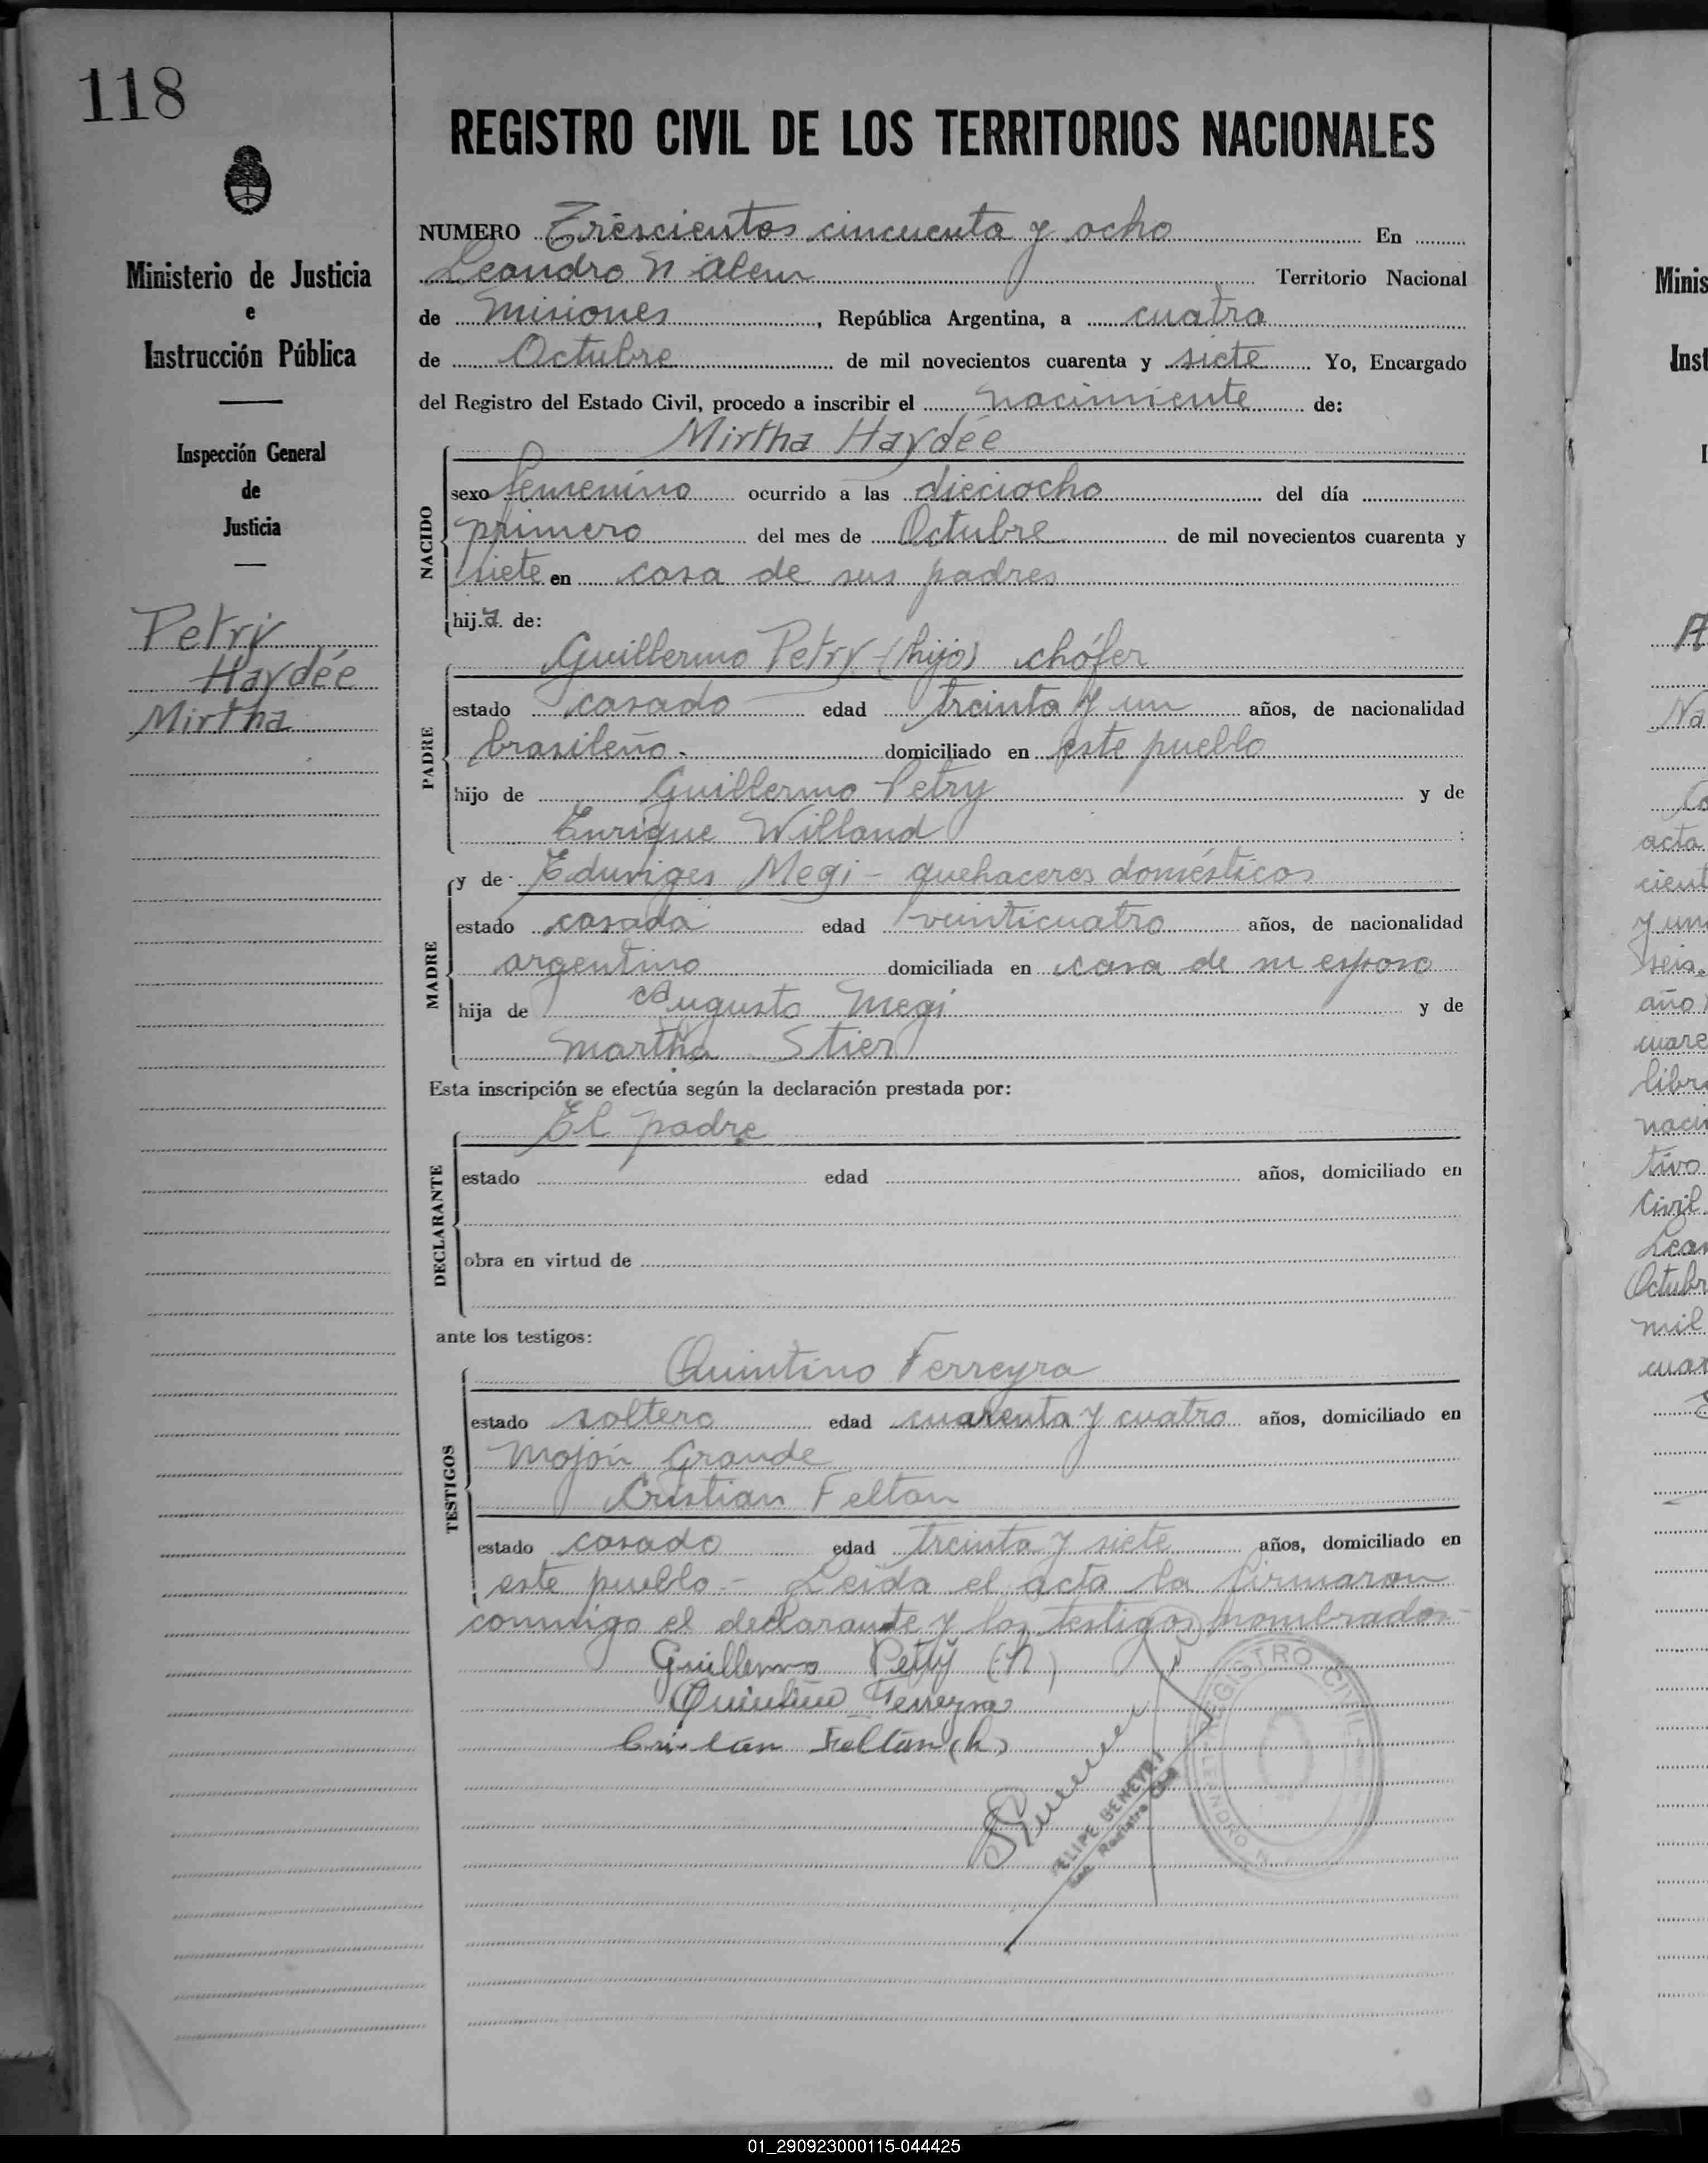 118
REGISTRO CIVIL DE LOS TERRITORIOS NACIONALES
Ministerio de Justicia
e
Instrucción Pública
Inspección General
de
Justicia
Petry
Haydée
Mirtha
NUMERO Trescientos cincuenta y ocho En
Leandro N Alem Territorio Nacional
de Misiones, República Argentina, a cuatro
de Octubre de mil novecientos cuarenta y siete Yo, Encargado
del Registro del Estado Civil, procedo a inscribir el nacimiento de:
Mirtha Haydée
NACIDO
sexo femenino ocurrido a las dieciocho del día
primero del mes de Octubre de mil novecientos cuarenta y
siete en casa de sus padres
hij.a de:
Guillermo Petry (hijo) chófer
PADRE
estado casado edad treinta y un años, de nacionalidad
brasileño. domiciliado en este pueblo
hijo de Guillermo Petry y de
Enrique Willand
MADRE
y de Eduviges Megi - quehaceres domésticos
estado casada edad veinticuatro años, de nacionalidad
argentino domiciliada en casa de su esposo
hija de Augusto Megi y de
Martha Stier
Esta inscripción se efectúa según la declaración prestada por:
El padre
DECLARANTE
estado edad años, domiciliado en
obra en virtud de
ante los testigos:
Quintino Ferreyra
TESTIGOS
estado soltero edad cuarenta y cuatro años, domiciliado en
Mojón Grande
Cristian Feltan
estado casado edad treinta y siete años, domiciliado en
este pueblo - Leida el acta la firmaron
conmigo el declarante y los testigos nombrados-
Guillermo Petry (h)
Quintino Ferreyra
Cristian Feltan (h)
REGISTRO CIVIL
LEANDRO N
FELIPE BENEYRI
Enc. Registro Civil
Minis
Inst
acta
cient
y un
seis
año
cuare
libro
naci
tivo
Civil
Lean
Octubr
mil
cuar
01_290923000115-044425